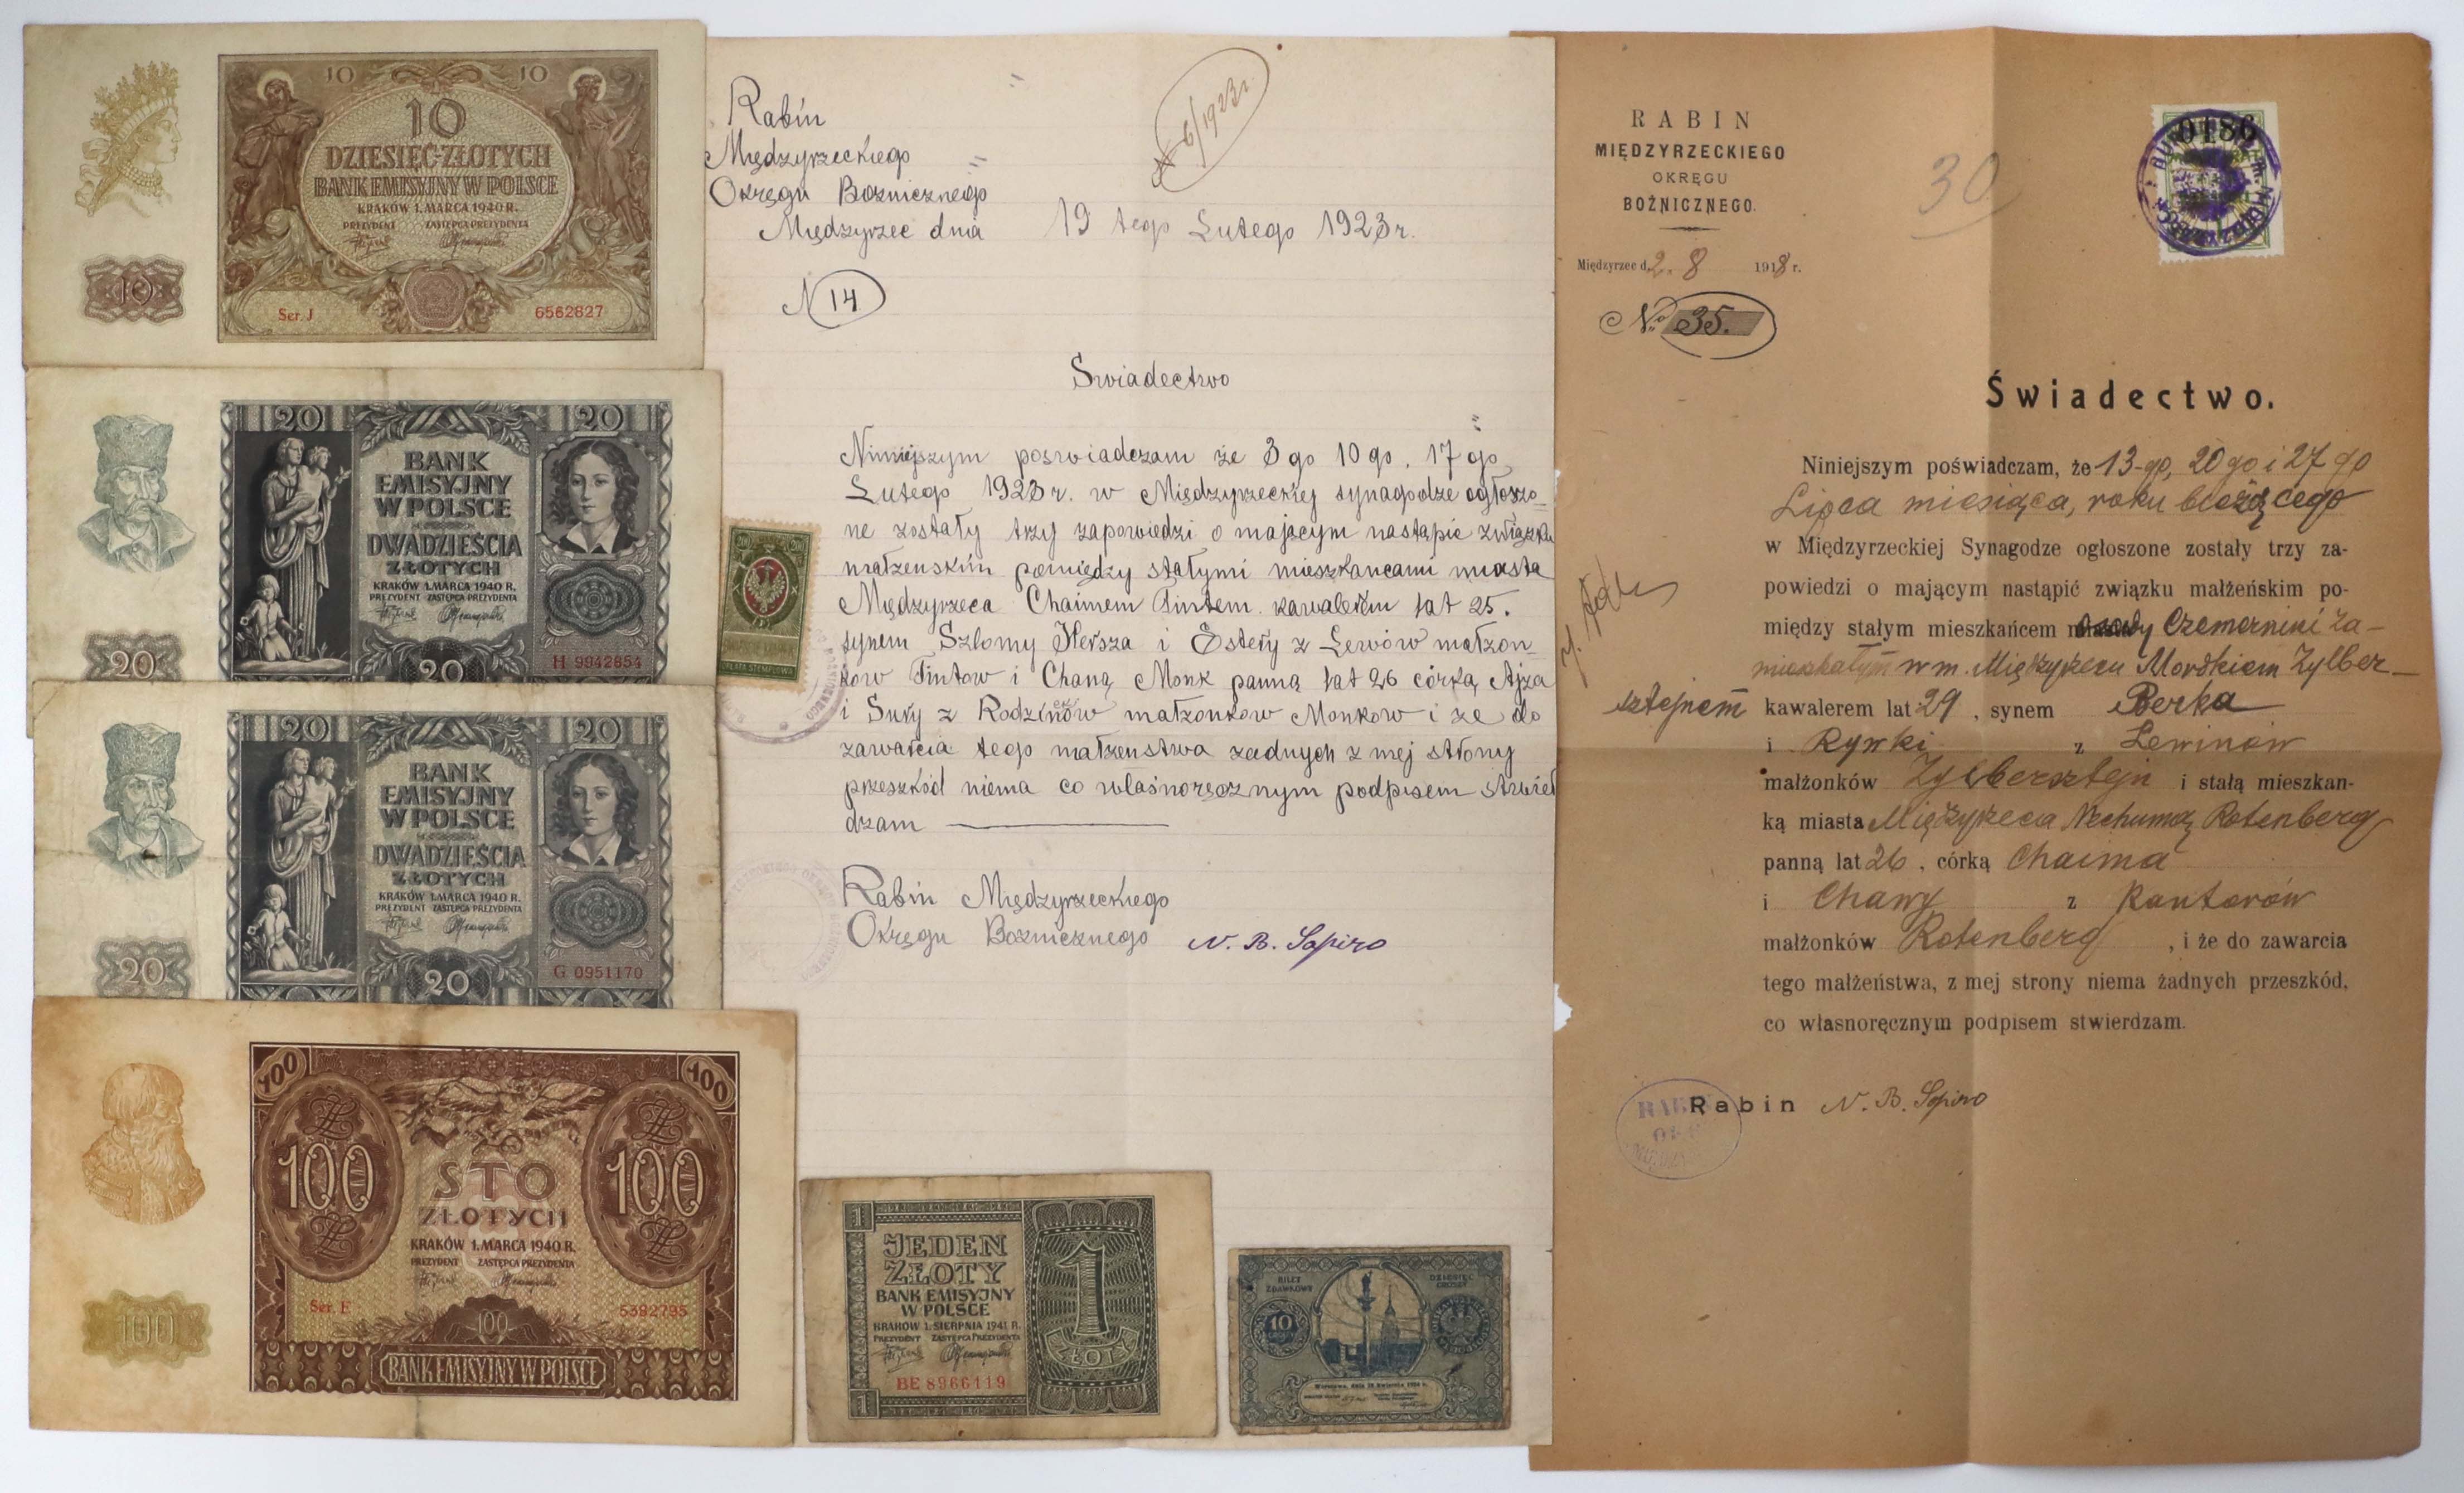 10 10
10
DZIESIĘĆ ZŁOTYCH
BANK EMISYJNY W POLSCE
KRAKÓW 1. MARCA 1940 R.
PREZYDENT ZASTĘPCA PREZYDENTA
10
Ser. J 6562827
20 20
BANK
EMISYJNY
W POLSCE
DWADZIEŚCIA
ZŁOTYCH
KRAKÓW 1. MARCA 1940 R.
PREZYDENT ZASTĘPCA PREZYDENTA
H 9942854
20 20
20 20
BANK
EMISYJNY
W POLSCE
DWADZIEŚCIA
ZŁOTYCH
KRAKÓW 1. MARCA 1940 R.
PREZYDENT ZASTĘPCA PREZYDENTA
G 0951170
20 20
100 100
100 100
STO
ZŁOTYCH
KRAKÓW 1. MARCA 1940 R.
PREZYDENT ZASTĘPCA PREZYDENTA
Ser. E 5392795
100 100
BANK EMISYJNY W POLSCE
N 6/1923r.
Rabin
Międzyrzeckiego
Okręgu Bozniczego
Międzyrzec dnia 19 tego Lutego 1923r.
N 14
Swiadectwo
Niniejszym poswiadczam że 3 go 10 go, 17 go
Lutego 1923r. w Międzyrzeckiej synagodze ogłoszo-
ne zostały trzy zapowiedzi o mającym nastąpic związku
małzenskim pomiędzy stałymi mieszkancami miasta
Międzyrzeca Chaimem Fintem kawalerem lat 25.
synem Szlomy Hersza i Estery z Lerwów małzon-
kow Fintow i Chaną Monk panną lat 26 córką Ajza
i Sury z Rodzinów małzonkow Monkow i ze do
zawarcia tego małzenstwa zadnych z mej strony
przeszkód niema co własnoręcznym podpisem stwier
dzam
OPŁATA STEMPLOWA
Rabin Międzyrzeckiego
Okręgu Bozniczego N. B. Sapiro
1
JEDEN
ZŁOTY
BANK EMISYJNY
W POLSCE
KRAKÓW 1. SIERPNIA 1941 R.
PREZYDENT ZASTĘPCA PREZYDENTA
BE 8966119
1
1
ZŁOTY
BILET
ZDAWKOWY
DZIESIĘĆ
GROSZY
10
RABIN
MIĘDZYRZECKIEGO
OKRĘGU
BOŻNICZNEGO.
Międzyrzec d. 2. 8 1918 r.
No 35.
30
0186
Świadectwo.
Niniejszym poświadczam, że 13-go, 20 go i 27 go
Lipca miesiąca, roku bieżącego
w Międzyrzeckiej Synagodze ogłoszone zostały trzy za-
powiedzi o mającym nastąpić związku małżeńskim po-
między stałym mieszkańcem osady Czemernini za-
mieszkałym w m. Międzyrzecu Mordkiem Zylber-
sztejnem kawalerem lat 29, synem Berka
i Rywki z Lewinów
małżonków Zylbersztejn i stałą mieszkan-
ką miasta Międzyrzeca Nechumą Rotenberg
panną lat 26, córką Chaima
i Chawy z Kantorów
małżonków Rotenberg, i że do zawarcia
tego małżeństwa, z mej strony niema żadnych przeszkód,
co własnoręcznym podpisem stwierdzam.
Rabin N. B. Sapiro